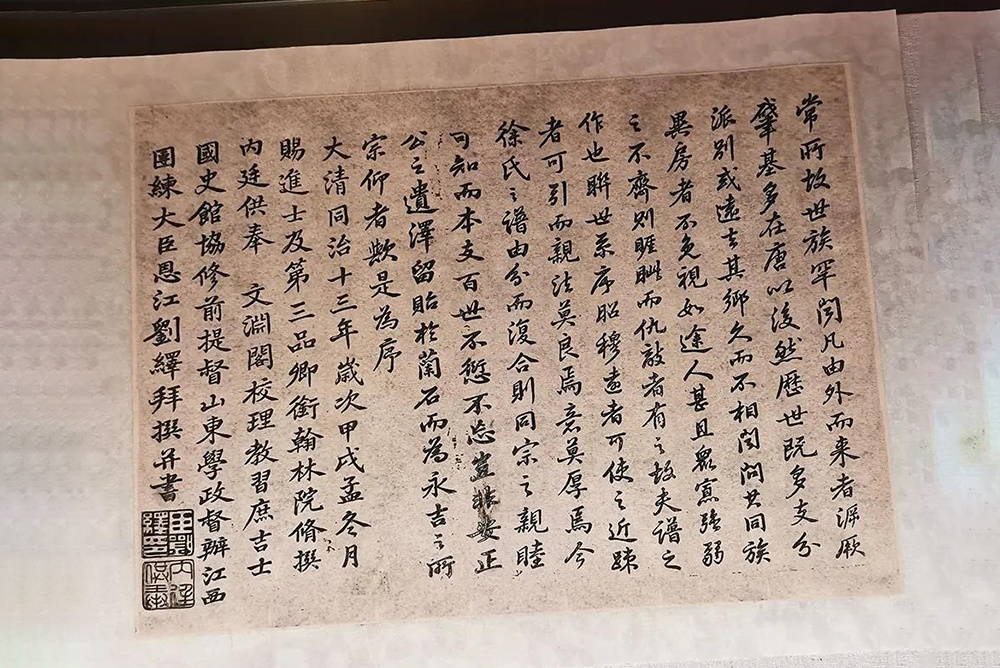 常所故世族罕聞凡由外而来者溯厥
肇基多在唐以後然歷世既多支分
派别或遠去其鄉久而不相聞問其同族
異房者不免視如途人甚且眾寡强弱
之不齊則睚眦而仇敵者有之故夫譜之
作也聯世系序昭穆遠者可使之近踈
者可引而親法莫良焉意莫厚焉今
徐氏之譜由分而復合則同宗之親睦
可知而本支百世不愆不忘豈非安正
公之遺澤留貽於蘭石而為永吉之所
宗仰者歟是為序
大清同治十三年歲次甲戌孟冬月
賜進士及第三品卿銜翰林院脩撰
内廷供奉 文淵閣校理教習庶吉士
國史館協修前提督山東學政督辦江西
團練大臣恩江劉繹拜撰并書